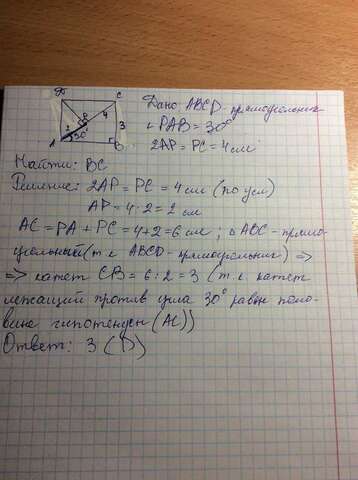 D C
P 4
2 3
30°
A B
Дано: ABCD - прямоугольник
∠PAB = 30°
2AP = PC = 4 см
Найти: BC
Решение: 2AP = PC = 4 см (по усл)
AP = 4 : 2 = 2 см
AC = PA + PC = 4+2 = 6 см ; △ ABC - прямо-
угольный (т.к ABCD - прямоугольник) =>
=> катет CB = 6 : 2 = 3 (т.к катет
лежащий против угла 30° равен поло-
вине гипотенузы (AC))
Ответ: 3 (D)